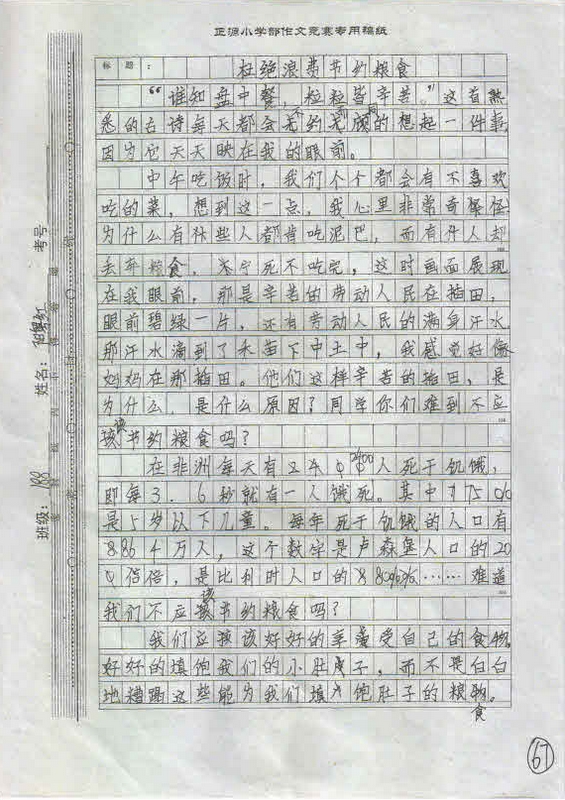 正源小学部作文竞赛专用稿纸
标题：杜绝浪费节约粮食
“谁知盘中餐，粒粒皆辛苦。”这首熟
悉的古诗每天都会不约而同的想起一件事，
因为它天天映在我的眼前。
中午吃饭时，我们个个都会有不喜欢
吃的菜，想到这一点，我心里非常奇怪怪
为什么有些人都肯吃泥巴，而有什人却
丢弃粮食，宁死不吃完，这时画面展现
在我眼前，那是辛苦的劳动人民在插田，
眼前碧绿一片，还有劳动人民的满身汗水
那汗水滴到了禾苗下中土中，我感觉好像
妈妈在那插田。他们这样辛苦的插田，是
为什么，是什么原因？同学你们难到不应
该节约粮食吗？
在非洲每天有24000人死于饥饿，
即每3.6秒就有一人饿死。其中17500
是5岁以下儿童。每年死于饥饿的人口有
8864万人，这个数字是卢森堡人口的20
倍倍，是比利时人口的88%……难道
我们不应该节约粮食吗？
我们应该好好的享受自己的食物，
好好的填饱我们的小肚子，而不是白白
地糟蹋这些能为我们填饱肚子的粮食。
班级：188
姓名：
考号
67